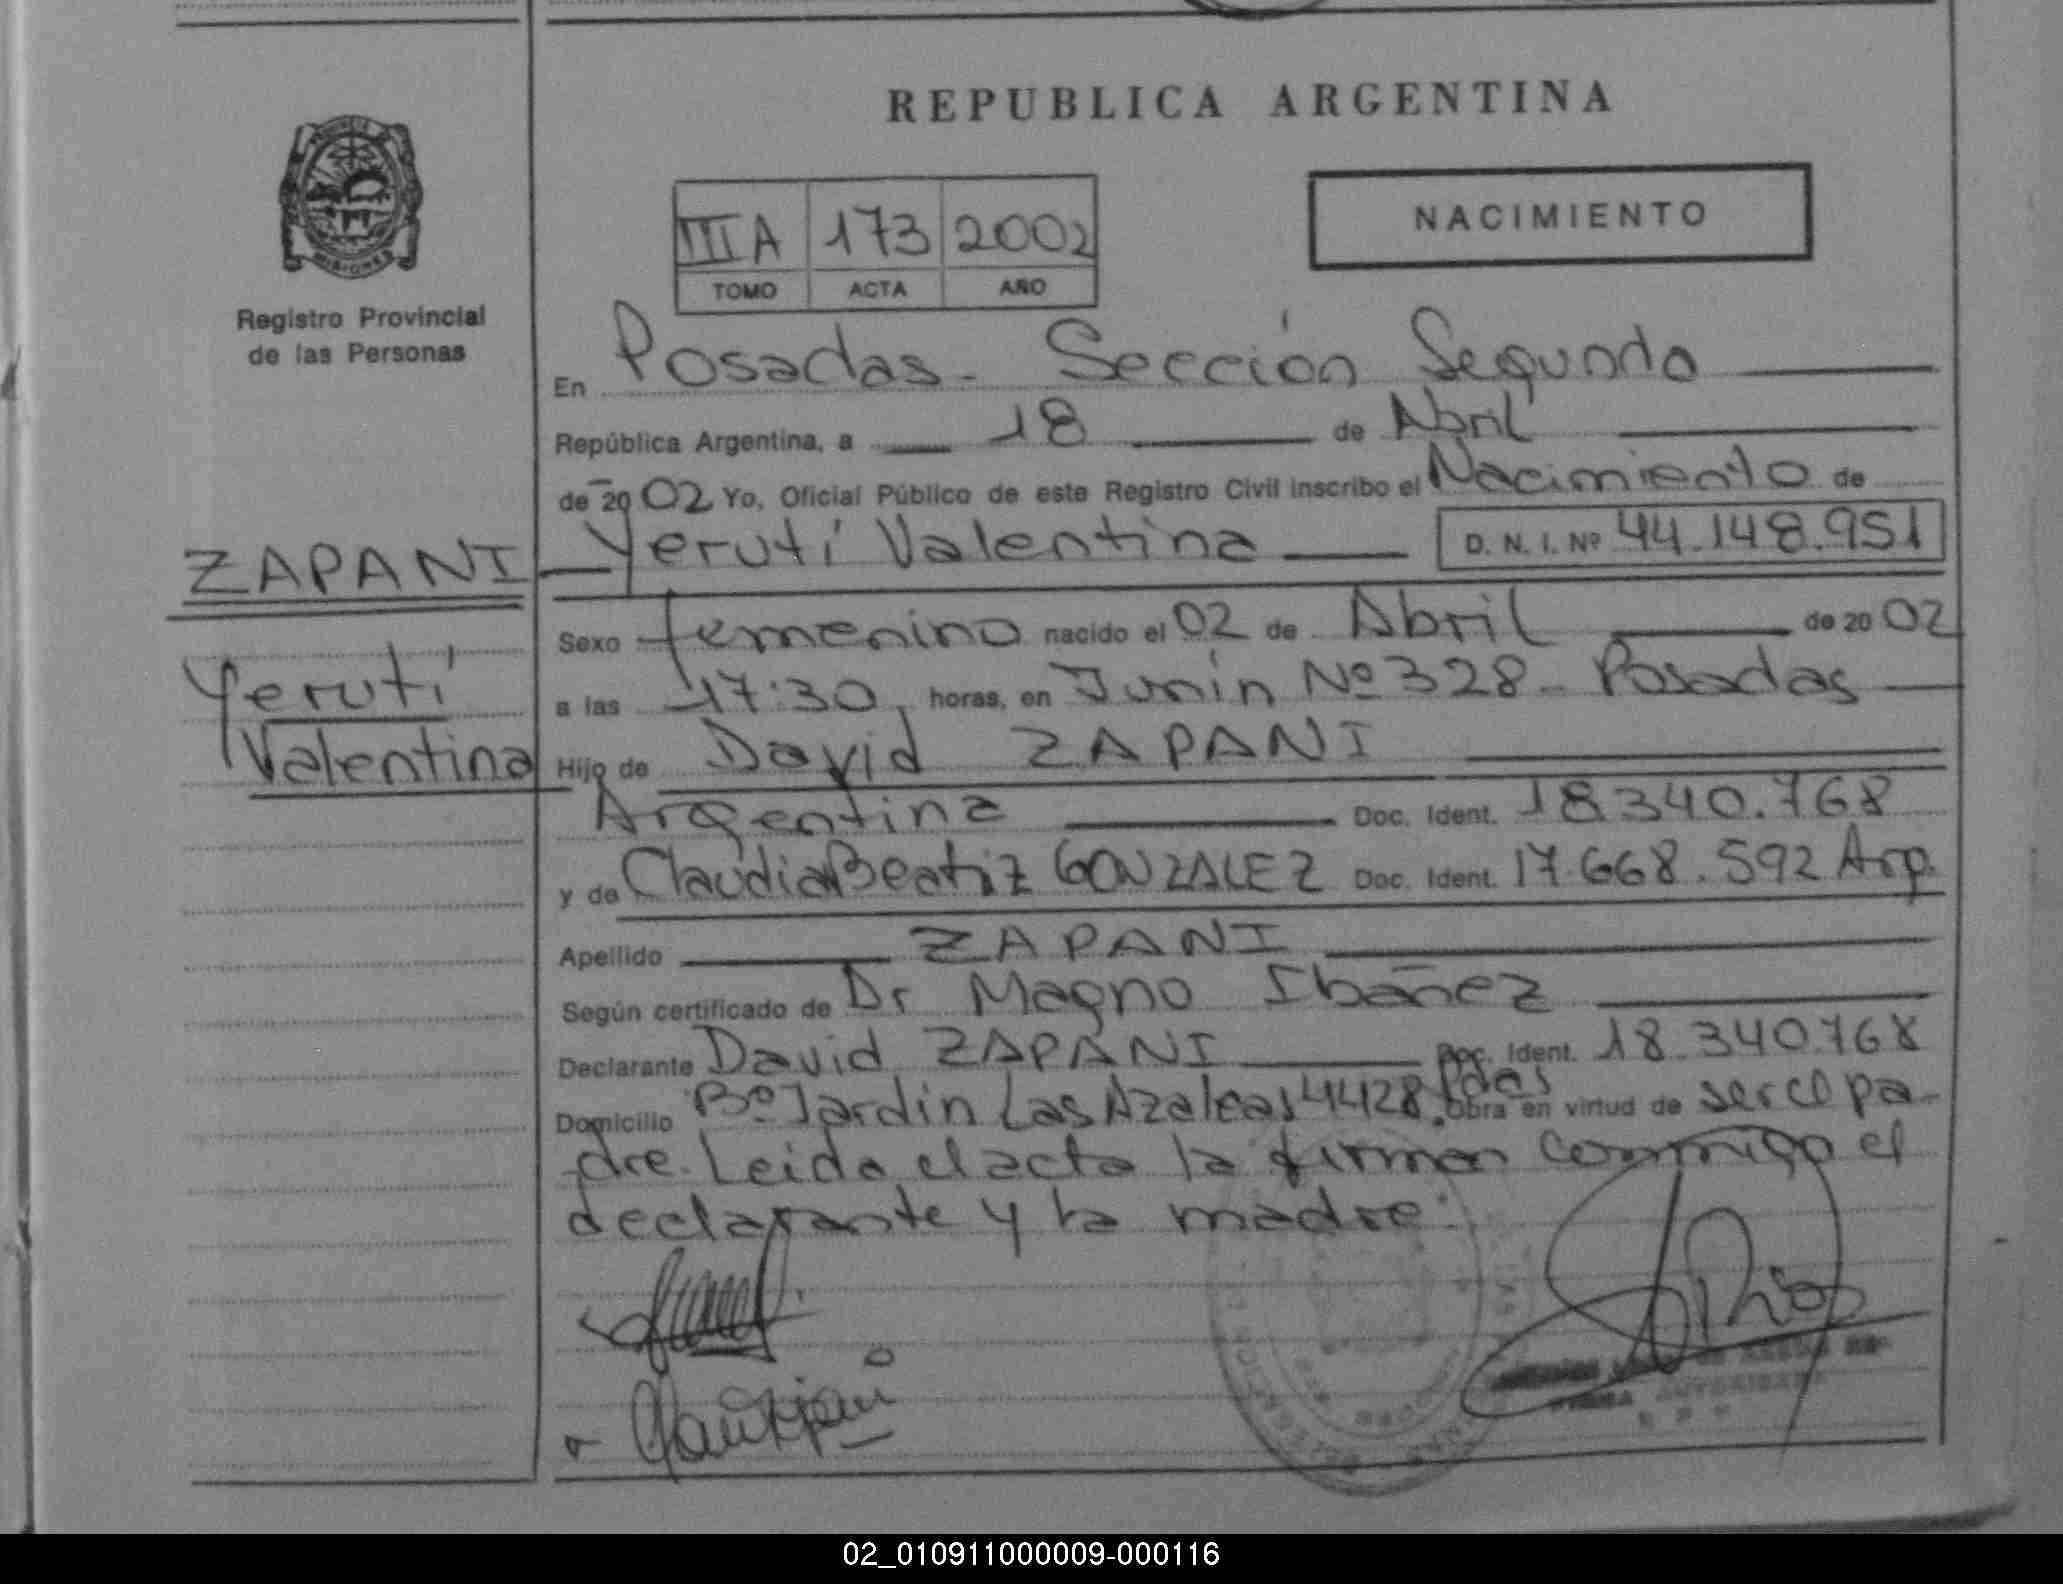 REPUBLICA ARGENTINA
PROVINCIA
MISIONES
Registro Provincial
de las Personas
III A 173 2002
TOMO ACTA AÑO
NACIMIENTO
En Posadas - Sección Segunda
República Argentina, a 18 de Abril
de 2002 Yo, Oficial Público de este Registro Civil inscribo el Nacimiento de
ZAPANI
Yerutí Valentina D. N. I. Nº 44.148.951
Sexo femenino nacido el 02 de Abril de 2002
Yerutí
Valentina
a las 17:30 horas, en Junín Nº 328 - Posadas
Hijo de David ZAPANI
Argentina Doc. Ident. 18.340.768
y de Claudia Beatiz GONZALEZ Doc. Ident. 17.668.592 Arg.
Apellido ZAPANI
Según certificado de Dr Magno Ibáñez
Declarante David ZAPANI Doc. Ident. 18.340.768
Domicilio Bº Jardín Las Azaleas 4428. Pdas Obra en virtud de ser el pa-
dre. Leída el acta la firman conmigo el
declarante y la madre.
02_010911000009-000116